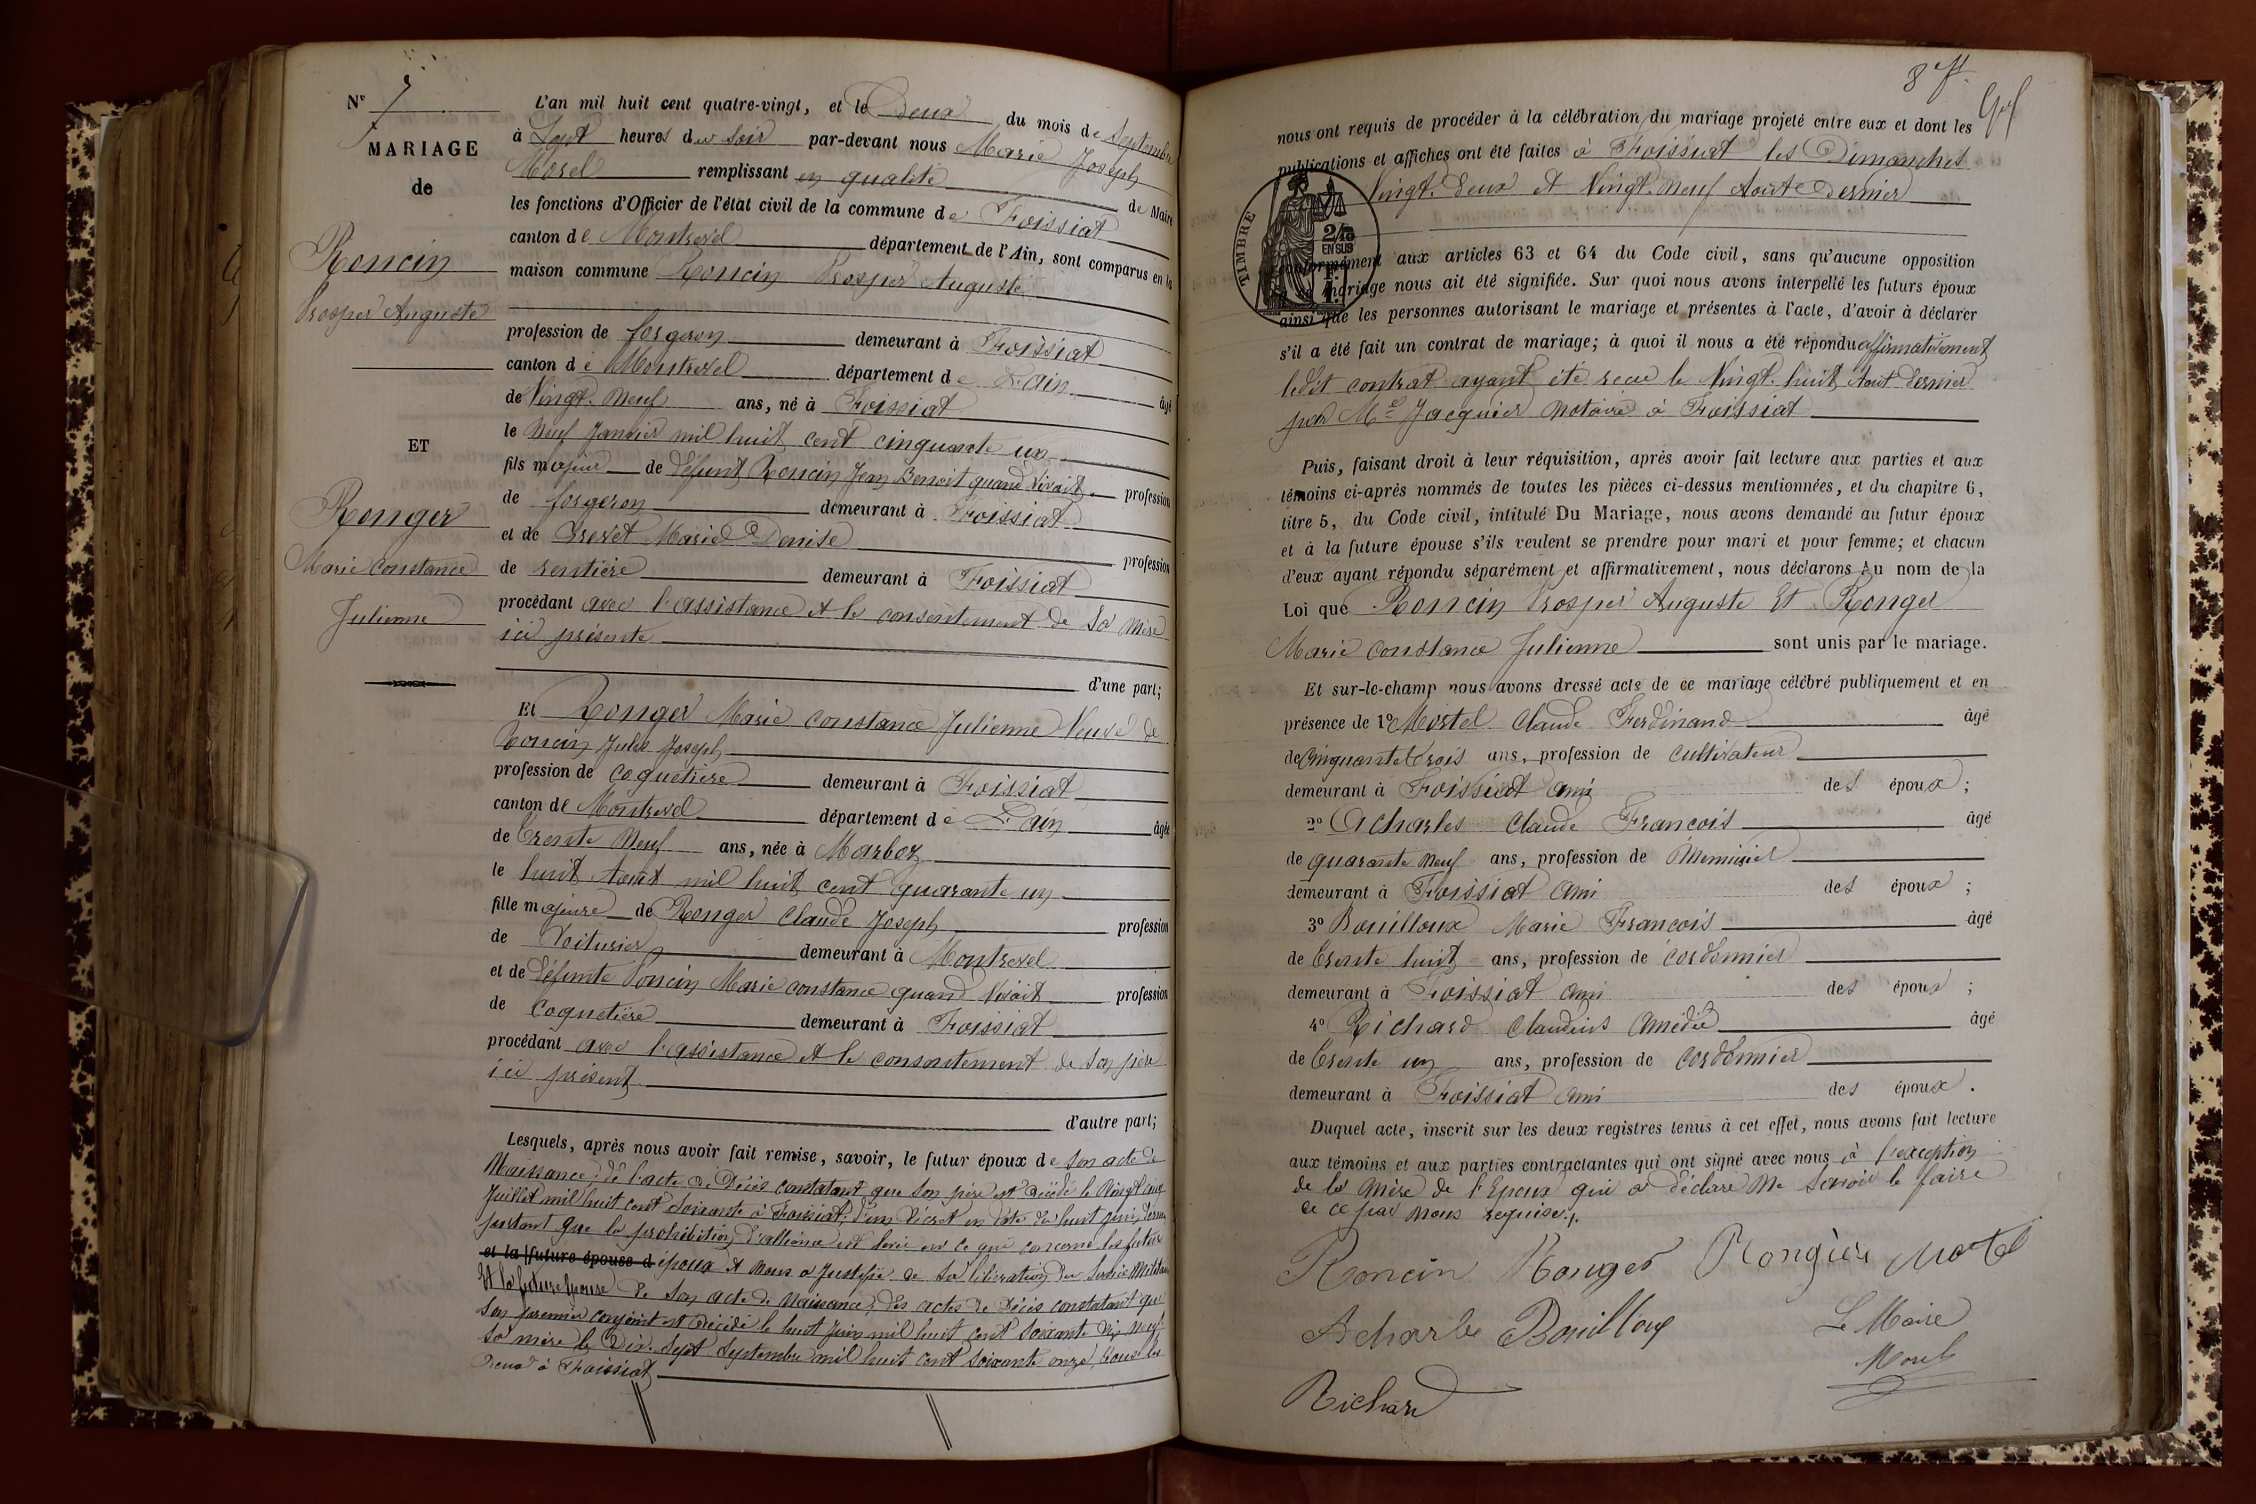 N° 7
MARIAGE
de
Roncin
Prosper Auguste
ET
Ronger
Marie Constance
Julienne
L'an mil huit cent quatre-vingt, et le Deux du mois de Septembre
à Sept heures du Soir par-devant nous Marie Joseph
Morel remplissant en qualité de Maire
les fonctions d'Officier de l'état civil de la commune de Foissiat
canton de Montrevel département de l'Ain, sont comparus en la
maison commune Roncin Prosper Auguste
profession de forgeron demeurant à Foissiat
canton de Montrevel département de L'ain âgé
de Vingt-Neuf ans, né à Foissiat
le Neuf Janvier mil huit cent cinquante un
fils majeur de Défunt Roncin Jean Benoit quand Vivait profession
de forgeron demeurant à Foissiat
et de Prevet Marie Denise profession
de rentière demeurant à Foissiat
procédant avec l'assistance et le consentement de Sa Mère
ici présente
d'une part;
Et Ronger Marie Constance Julienne Veuve de
Roncin Jules Joseph
profession de coquetière demeurant à Foissiat
canton de Montrevel département de L'ain âgée
de Trente Neuf ans, née à Marboz
le huit Août mil huit cent quarante un
fille majeure de Ronger Claude Joseph profession
de Voiturier demeurant à Montrevel
et de Défunte Poncin Marie Constance quand Vivait profession
de Coquetière demeurant à Foissiat
procédant avec l'assistance et le consentement de Son père
ici présent
d'autre part;
Lesquels, après nous avoir fait remise, savoir, le futur époux de Son acte de
Naissance, de l'acte de Décès constatant que Son père est décédé le Vingt cinq
Juillet mil huit cent Soixante à Foissiat; d'un Décret en date du huit Juin dernier
portant que la prohibition d'alliance est levée en ce qui concerne les futurs
et la future épouse d époux et Nous a Justifié de Sa libération du Service Militaire
Et la future épouse de Son acte de Naissance, des actes de Décès constatant que
Son premier conjoint est décédé le huit Juin mil huit cent Soixante Dix Neuf
Sa mère le Dix-Sept Septembre mil huit cent Soixante onze, tous les
Deux à Foissiat
nous ont requis de procéder à la célébration du mariage projeté entre eux et dont les
publications et affiches ont été faites à Foissiat les Dimanches
Vingt-Deux et Vingt-Neuf Août Dernier
TIMBRE
2/10
EN SUS
conformément aux articles 63 et 64 du Code civil, sans qu'aucune opposition
au dit mariage nous ait été signifiée. Sur quoi nous avons interpellé les futurs époux
ainsi que les personnes autorisant le mariage et présentes à l'acte, d'avoir à déclarer
s'il a été fait un contrat de mariage; à quoi il nous a été répondu affirmativement
ledit contrat ayant été recu le Vingt-huit Août Dernier
par Me Jacquier Notaire à Foissiat
Puis, faisant droit à leur réquisition, après avoir fait lecture aux parties et aux
témoins ci-après nommés de toutes les pièces ci-dessus mentionnées, et du chapitre 6,
titre 5, du Code civil, intitulé Du Mariage, nous avons demandé au futur époux
et à la future épouse s'ils veulent se prendre pour mari et pour femme; et chacun
d'eux ayant répondu séparément et affirmativement, nous déclarons Au nom de la
Loi que Roncin Prosper Auguste Et Ronger
Marie Constance Julienne sont unis par le mariage.
Et sur-le-champ nous avons dressé acte de ce mariage célébré publiquement et en
présence de 1° Mortel Claude Ferdinand âgé
de Cinquante trois ans, profession de cultivateur
demeurant à Foissiat ami des époux;
2° Acharles Claude François âgé
de quarante Neuf ans, profession de Menuisier
demeurant à Foissiat ami des époux;
3° Bouilloux Marie François âgé
de Trente huit ans, profession de cordonnier
demeurant à Foissiat ami des époux;
4° Richard Claudius Amédée âgé
de Trente un ans, profession de cordonnier
demeurant à Foissiat ami des époux.
Duquel acte, inscrit sur les deux registres tenus à cet effet, nous avons fait lecture
aux témoins et aux parties contractantes qui ont signé avec nous à l'exception
de la Mère de l'Epoux qui a déclaré Ne Savoir le faire
de ce par Nous requise.
Roncin Ronger Rongère Mortel
Acharles Bouilloux Le Maire
Morel
Richard